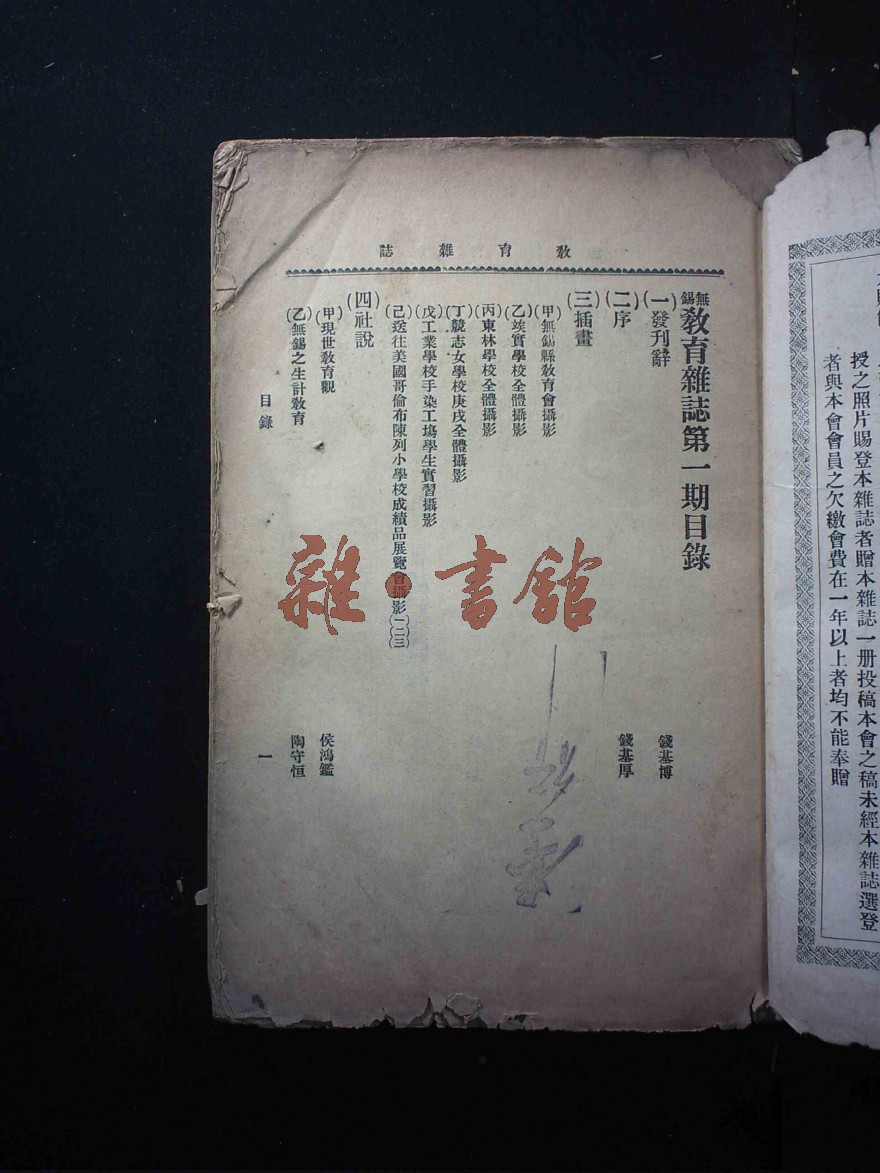 授之照片賜登本雜誌者贈本雜誌一册投稿本會之稿未經本雜誌選登
者與本會會員之欠繳會費在一年以上者均不能奉贈
教育雜誌
無錫教育雜誌第一期目錄
(一)發刊辭 錢基博
(二)序 錢基厚
(三)插畫
(甲)無錫縣教育會攝影
(乙)竢實學校全體攝影
(丙)東林學校全體攝影
(丁)競志女學校庚戌全體攝影
(戊)工業學校手染工塲學生實習攝影
(己)送往美國哥倫布陳列小學校成績品展覽會攝影(一)(二)(三)
(四)社說
(甲)現世教育觀 侯鴻鑑
(乙)無錫之生計教育 陶守恒
目錄 一
雜·書館